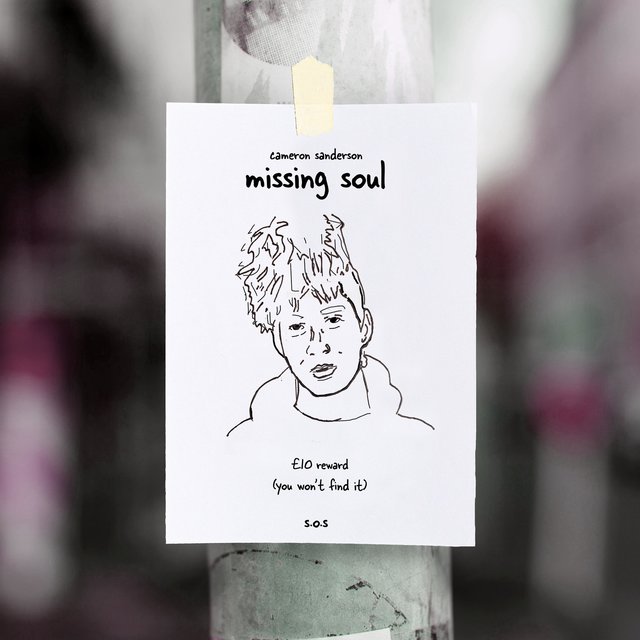 cameron sanderson
missing soul
£10 reward
(you won't find it)
s.o.s